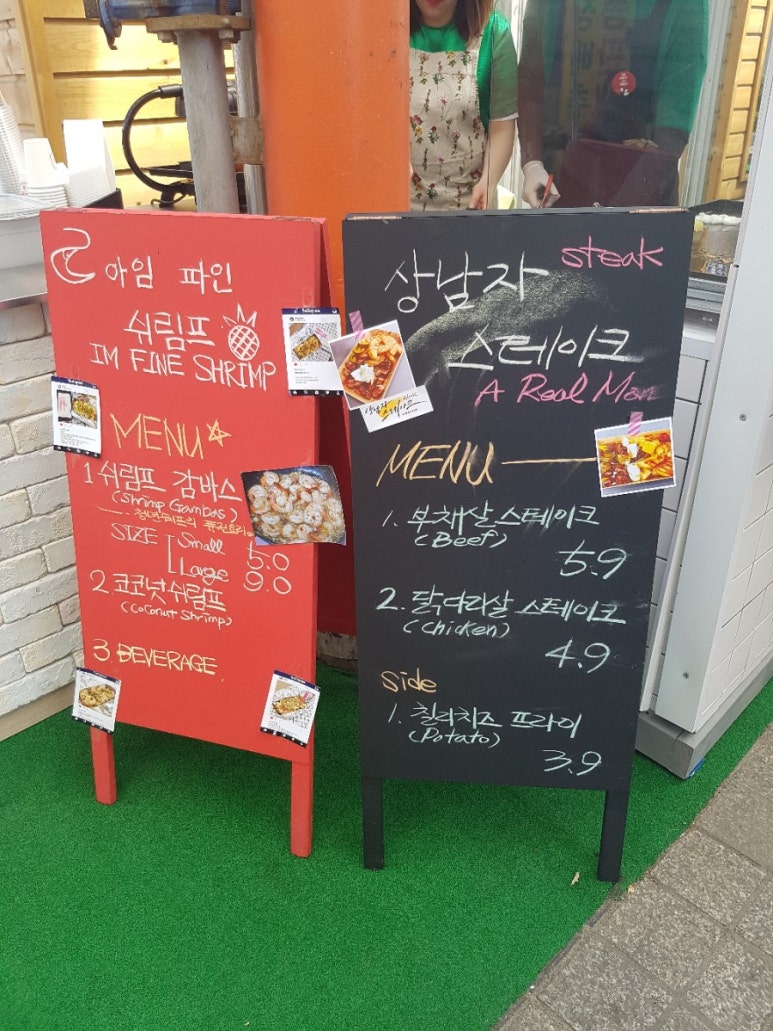 아임 파인
쉬림프
IM FINE SHRIMP
MENU
1 쉬림프 감바스
(Shrimp Gambas)
SIZE Small 5.0
Large 9.0
2. 코코넛 쉬림프
(Coconut Shrimp)
3. BEVERAGE
상남자 steak
스테이크
A Real Man
상남자 스테이크
MENU
1. 부채살 스테이크
(Beef)
5.9
2. 닭다리살 스테이크
(Chicken)
4.9
side
1. 칠리치즈 프라이
(Potato)
3.9